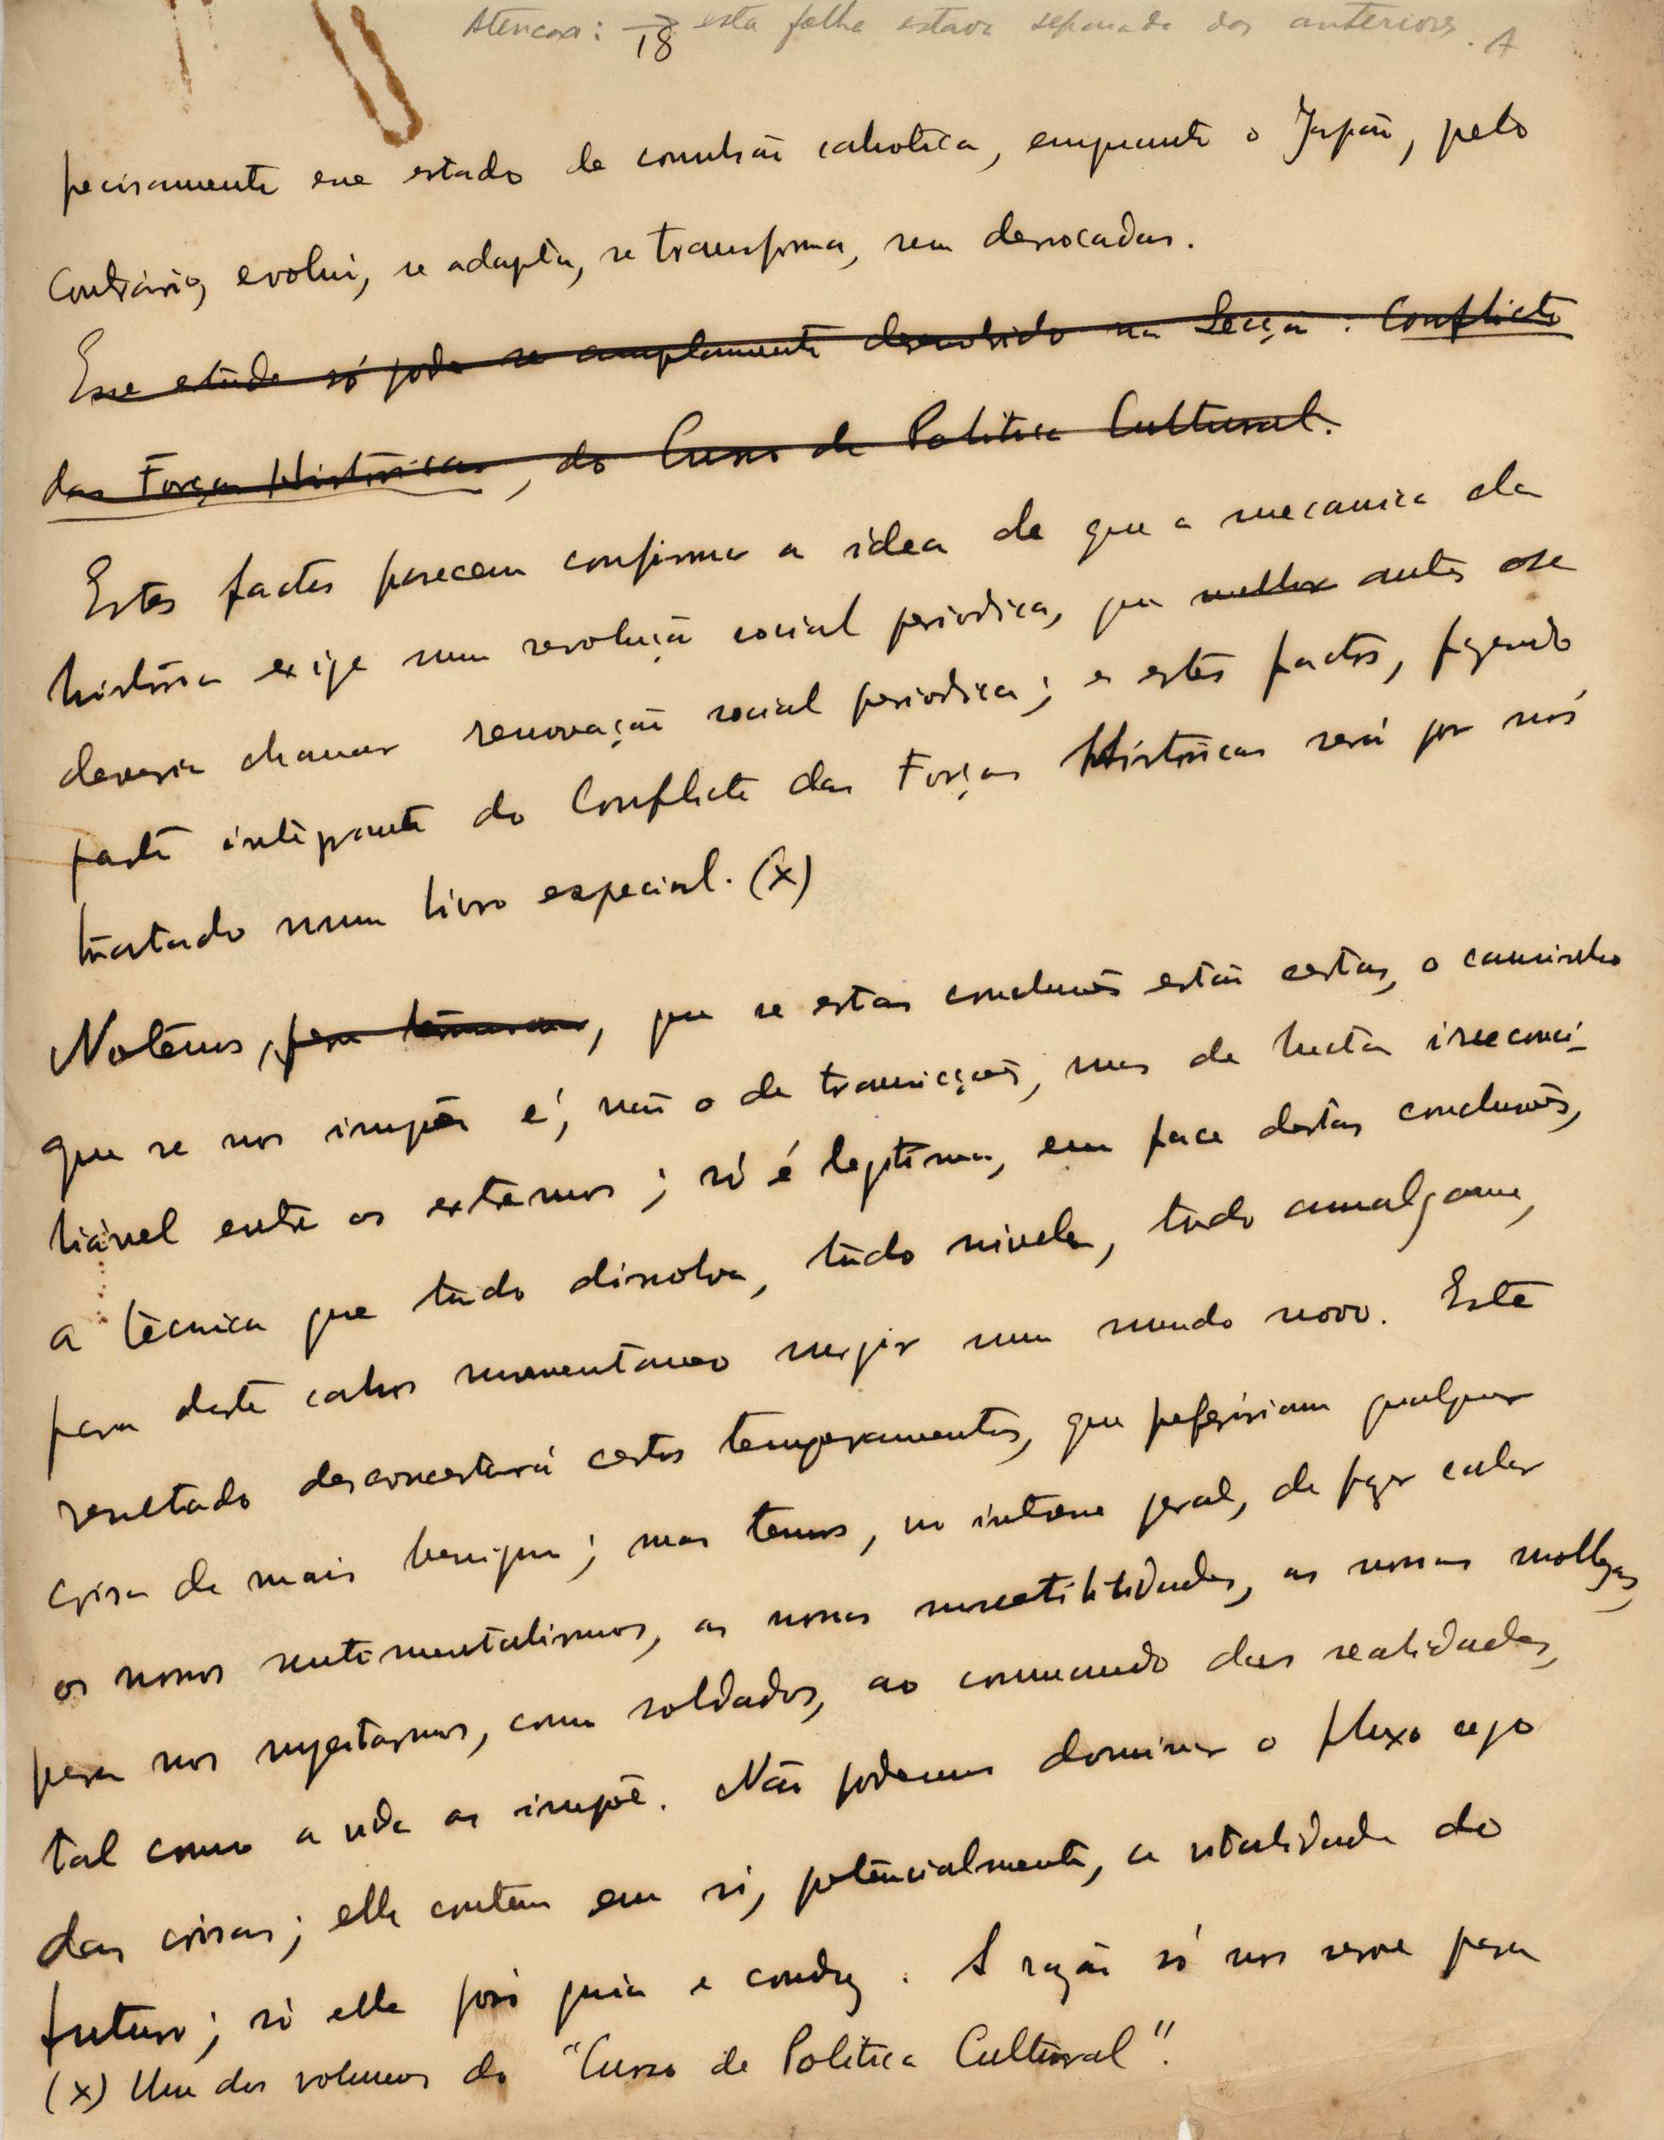 Atencao: → esta folha estava separada das anteriores. A
18
precisamente esse estado de convulsão cahotica, emquanto o Japão, pelo
contrário, evolui, se adapta, se transforma, sem derrocadas.
Esse estudo só pode ser amplamente desenvolvido na Secção: Conflicto
das Forças Historicas, do Curso de Politica Cultural.
Estes factos parecem confirmar a idea de que a mecanica da
história exige uma revolução social periodica, que melhor antes se
deveria chamar renovação social periodica; e estes factos, fazendo
parte integrante do Conflicto das Forças Históricas será por nós
tratado num livro especial. (x)
Notemos, para terminar, que se estas conclusões estão certas, o caminho
que se nos impõe é, não o de transicções, mas de lucta irreconci-
liável entre os extremos; só é legitima, em face destas conclusões,
a técnica que tudo dissolva, tudo nivele, tudo amalgame,
para deste cahos momentaneo surgir um mundo novo. Este
resultado desconcertará certos temperamentos, que prefeririam qualquer
coisa de mais benigno; mas temos, no interesse geral, de fazer calar
os nossos sentimentalismos, as nossas susceptibilidades, as nossas mollezas,
para nos sujeitarmos, como soldados, ao commando das realidades,
tal como a vida as impõe. Não podemos dominar o fluxo cego
das coisas; elle contem em si, potencialmente, a vitalidade do
futuro; só elle nos guia e conduz. A razão só nos serve para
(x) Um dos volumes do "Curso de Politica Cultural".